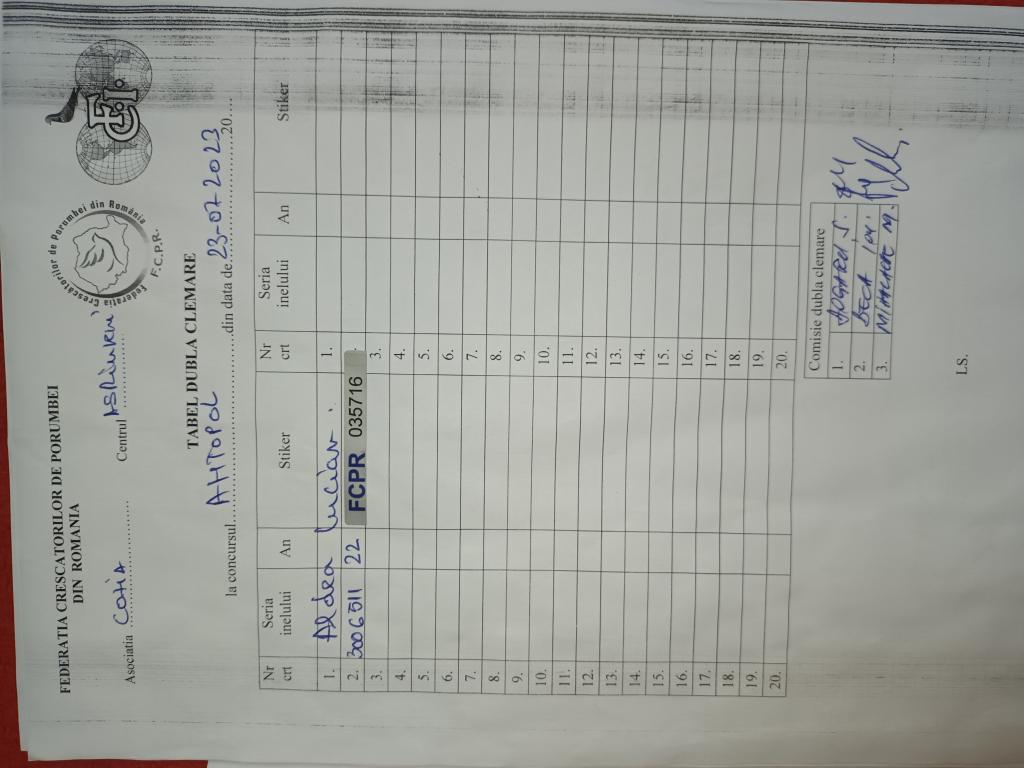 FEDERATIA CRESCATORILOR DE PORUMBEI
DIN ROMANIA
Federatia Crescătorilor de Porumbei din România
F.C.P.R.
F.C.I.
Asociatia COTIA Centrul
TABEL DUBLA CLEMARE
la concursul AHTOPOL din data de 23-07-2023 20
Nr crt Seria inelului An Stiker Nr crt Seria inelului An Stiker
1. Aldea Lucian. 1.
2. 3006511 22 FCPR 035716
3. 3.
4. 4.
5. 5.
6. 6.
7. 7.
8. 8.
9. 9.
10. 10.
11. 11.
12. 12.
13. 13.
14. 14.
15. 15.
16. 16.
17. 17.
18. 18.
19. 19.
20. 20.
Comisie dubla clemare
1.
2.
3. M.
LS.